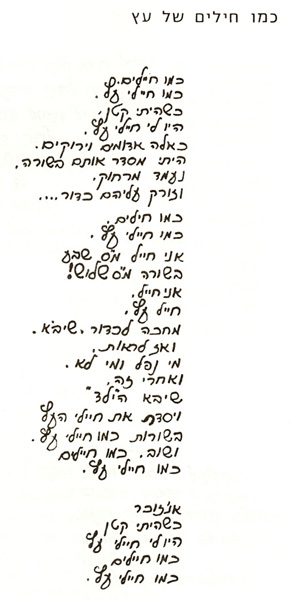 כמו חילים של עץ
כמו חיילים.
כמו חיילי עץ.
כשהיתי קטן,
היו לי חיילי עץ.
כאלה אדומים וירוקים.
היתי מסדר אותם בשורה,
נעמד מרחוק,
וזורק עליהם כדור....
כמו חילים.
כמו חיילי עץ.
אני חייל מ"ס שבע
בשורה מ"ס שלוש!
אני חייל.
חייל עץ.
מחכה לכדור שיבא.
ואז לראות,
מי נפל ומי לא.
ואחרי זה,
שיבא ה"ילד"
ויסדר את חיילי העץ
בשורות כמו חיילי עץ.
ושוב, כמו חיילים
כמו חיילי עץ.
אני זוכר
כשהיתי קטן
היו לי חיילי עץ
כמו חיילים
כמו חיילי עץ.